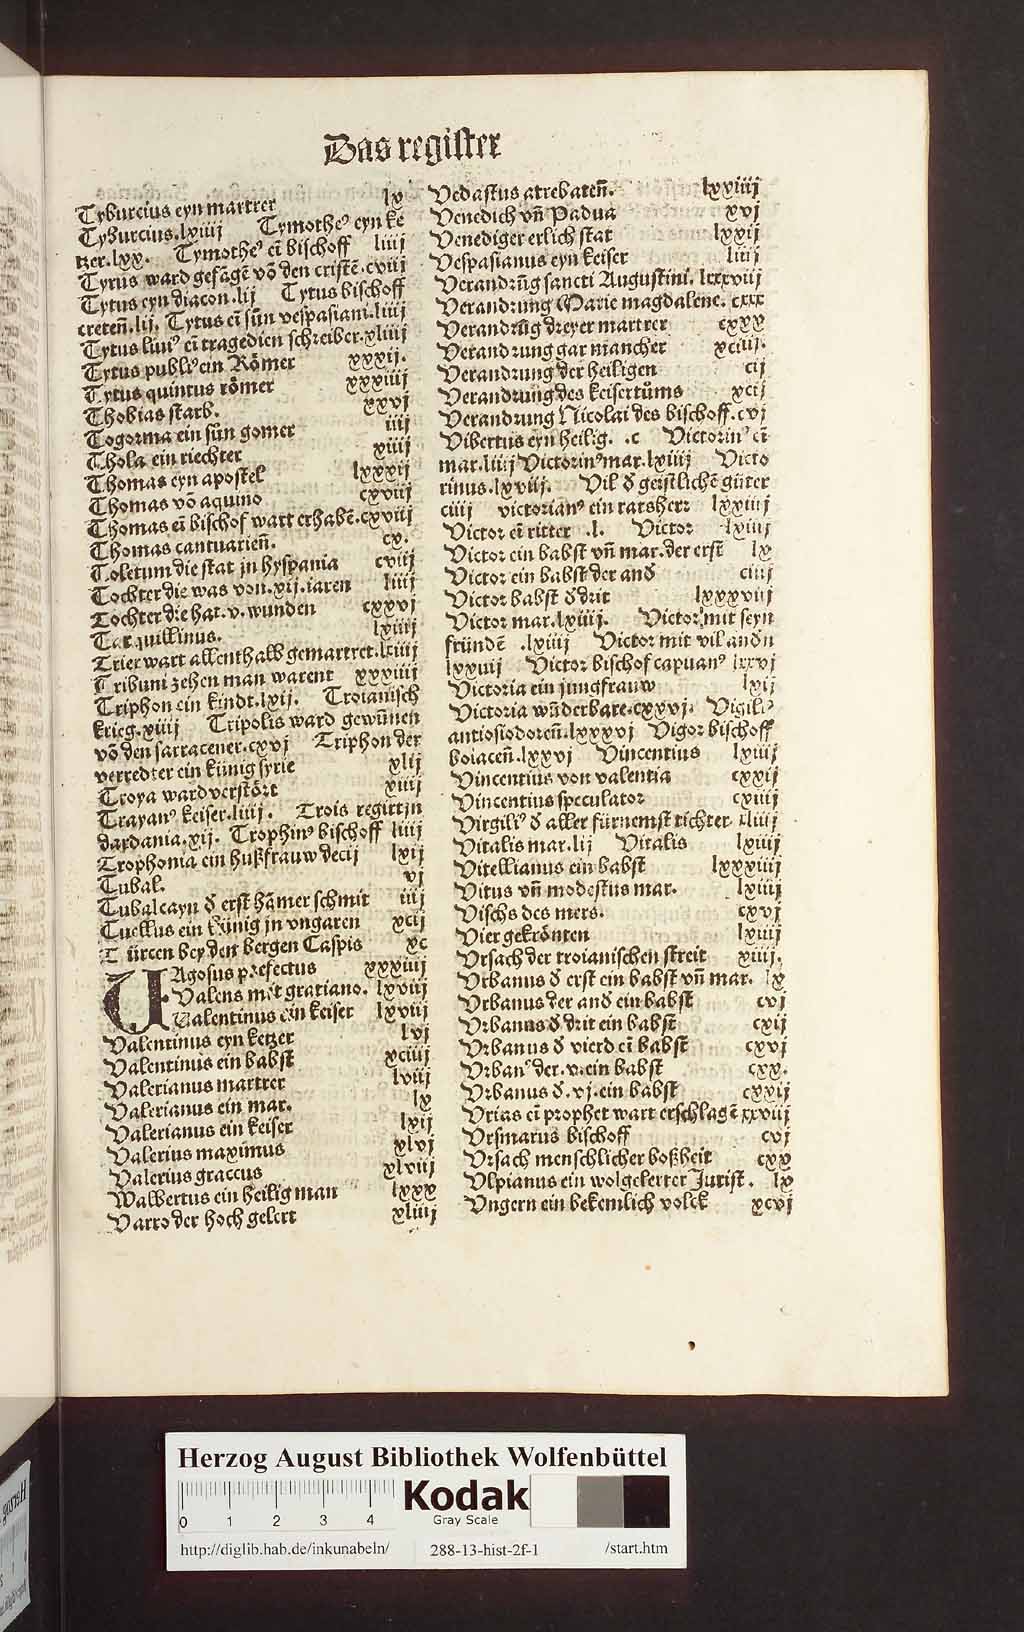 Das register
Tyburcius eyn martrer lx
Tyburcius.lxiiij Tymotheꝰ eyn ke
tzer.lxx. Tymotheꝰ eī bischoff liiij
Tyrus ward gefāgē vō den cristē.cviij
Tytus eyn diacon.lij Tytus bischoff
creteñ.lij. Tytus eī sūn vespasiani.liiij
Tytus liuiꝰ eī tragedien schreiber.xliiij
Tytus publiꝰ ein Römer xxxij.
Tytus quintus römer xxxiiij
Thobias starb. xxvj
Togorma ein sūn gomer iiij
Thola ein riechter xiiij
Thomas eyn apostel lxxxij
Thomas vō aquino cxviij
Thomas eī bischof wart erhabē.cxviij
Thomas cantuarieñ. cx.
Toletum die stat jn hyspania cviij
Tochter die was von.xij.iaren liiij
Tochter die hat.v.wunden cxxvj
Tarquillinus. lxiiij
Trier wart allenthalb gemartret.lxiiij
Tribuni zehen man warent xxxiiij
Triphon ein kindt.lxij. Troianisch
krieg.xiiij Tripolis ward gewūnen
vō den sarracener.cxvj Triphon der
verredter ein künig syrie xlij
Troya ward verstört xiiij
Trayanꝰ keiser.liiij. Trois regirt jn
dardania.xij. Trophinꝰ bischoff liiij
Trophonia ein hußfrauw decij lxij
Tubal. vj
Tubalcayn ð erst hāmer schmit iiij
Tuellus ein künig jn vngaren xcij
Türcen bey den bergen Caspis xc
VAgosus prefectus xxxiiij
Valens mit gratiano. lxviij
Valentinus ein keiser lxviij
Valentinus eyn ketzer lvj
Valentinus ein babst xciiij
Valerianus martrer lviij
Valerianus ein mar. lx
Valerianus ein keiser lxij
Valerius maximus xlvj
Valerius graccus xlviij
Walbertus ein heilig man lxxx
Varro der hoch gelert xliiij
Vedastus atrebateñ. lxxiiij
Venedich vñ Padua xvj
Venediger erlich stat lxxij
Vespasianus eyn keiser liiij
Verandrūg sancti Augustini. lxxxviij
Verandrung Marie magdalene. cxxx
Verandrūg dreyer martrer cxxx
Verandrung gar mancher xciiij.
Verandrung der heiligen cij
Verandrung des keisertūms xcij
Verandrung Nicolai des bischoff.cvj
Vibertus eyn heilig. .c Victorinꝰ eī
mar.liiij Victorinꝰ mar.lxiiij Victo
rinus.lxviij. Vil ð geistlichē güter
ciiij victorianꝰ ein ratsherr lxxiiij
Victor eī ritter .l. Victor lxiiij
Victor ein babst vñ mar.der erst lx
Victor ein babst der and ciiij
Victor babst ð drit lxxxviij
Victor mar.lxiiij. Victor mit seyn
fründē .lxiiij Victor mit vil andn
lxxiiij Victor bischof capuanꝰ lxxvj
Victoria ein jungfrauw lxij
Victoria wūderbare.cxxvj. Vigiliꝰ
antiosiodoreñ.lxxxvj Vigor bischoff
boiaceñ.lxxvj Vincentius lxiiij
Vincentius von valentia cxxij
Vincentius speculator cxiiij
Virgiliꝰ ð aller fürnemst tichter xliiij
Vitalis mar.lij Vitalis lxiiij
Vitellianus ein babst lxxxiiij
Vitus vñ modestus mar. lxiiij
Vischs des mers. cxvj
Vier gekrönten lxiiij
Vrsach der troianischen streit xiiij.
Vrbanus ð erst ein babst vñ mar. lx
Vrbanus der and ein babst cvj
Vrbanus ð drit ein babst cxij
Vrbanus ð vierd eī babst cxvj
Vrbanꝰ der.v.ein babst cxx.
Vrbanus ð.vj.ein babst cxxij
Vrias eī prophet wart erschlagē xxviij
Vrsmarus bischoff cvj
Vrsach menschlicher boßheit cxx
Vlpianus ein wolgelerter Jurist. lx
Vngern ein bekemlich volck xcvj
Herzog August Bibliothek Wolfenbüttel
0 1 2 3 4
Kodak
Gray Scale
http://diglib.hab.de/inkunabeln/ 288-13-hist-2f-1 /start.htm